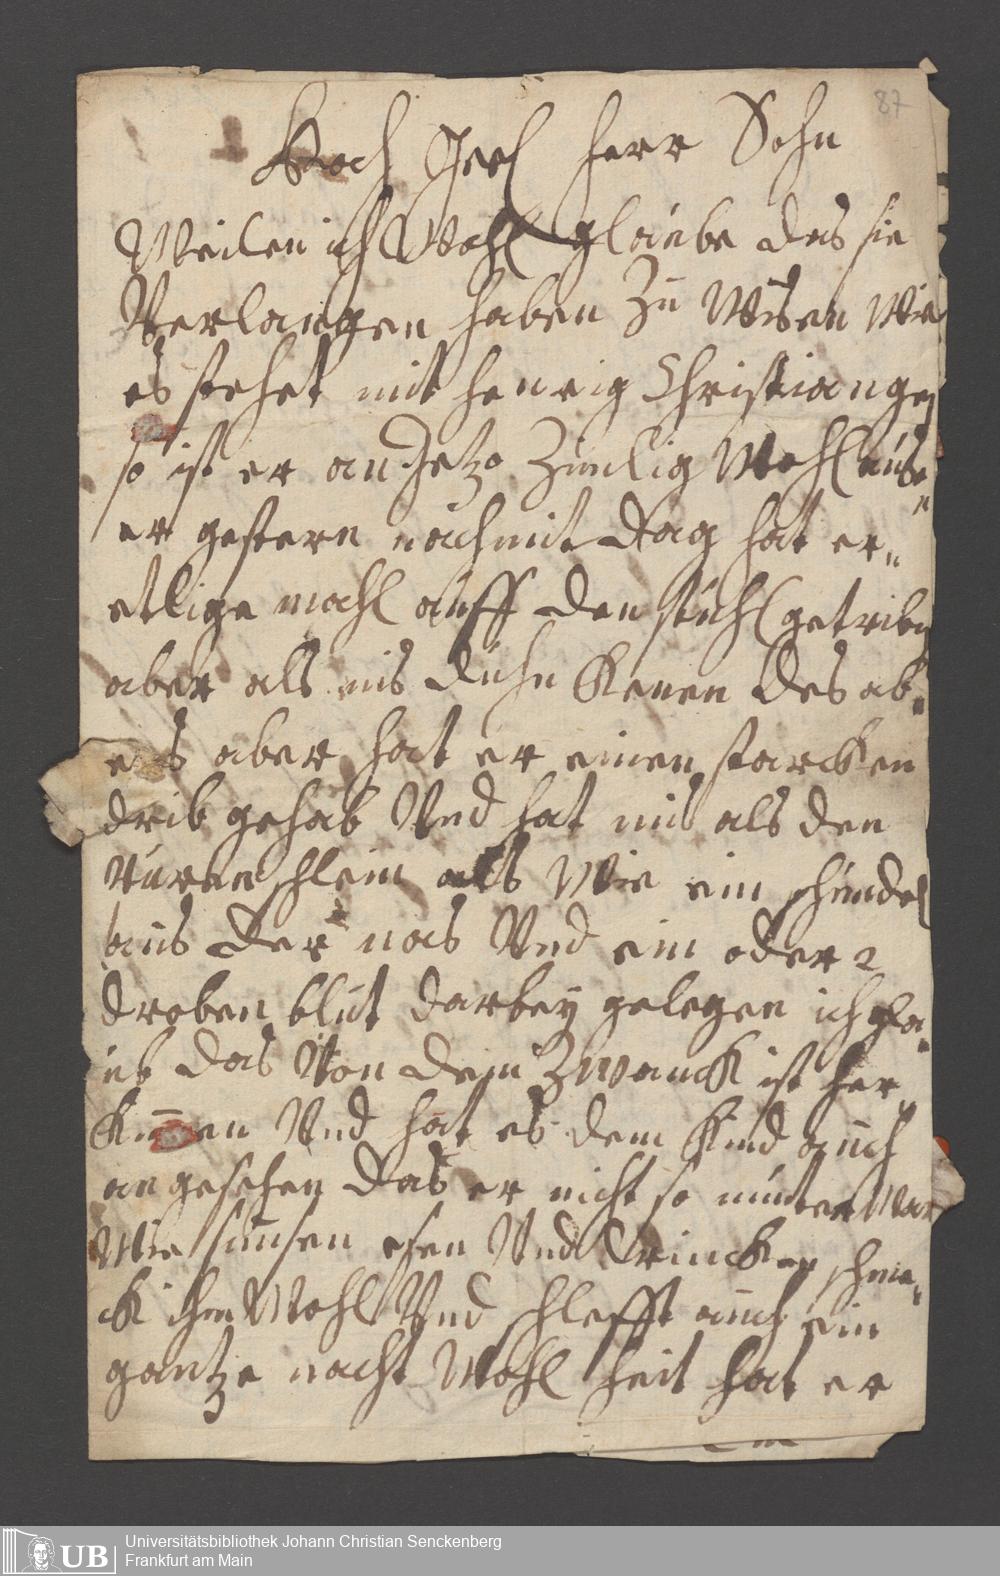 87
Hoch Geel Herr Sohn
Weilen ich Wohl glaube das sie
Verlangen haben Zu Wisen Wie
es stehet mit Henrig Christiangen
so ist er an Jetzo Zimlig Wohl auser
er gestern nachmit Dag hat er
etlige mahl auff den stuhl getriben
aber als nis duhn kenen des ab
ets aber hat er einen starcken
drib gehab Und hat nis als den
Puren schleim als Wie ein schnudel
aus der nas Und ein oder 2
droben blut darbey gelegen ich gla
ub das Von dem Zwanck ist her
kumen Und hat es dem Kind auch
an gesehen das er nicht so munter War
Wie sunsen esen Und Drincken schme
ck ihm Wohl Und schlefft auch ein
gantze nacht Wohl heit hat er
Universitätsbibliothek Johann Christian Senckenberg
UB Frankfurt am Main